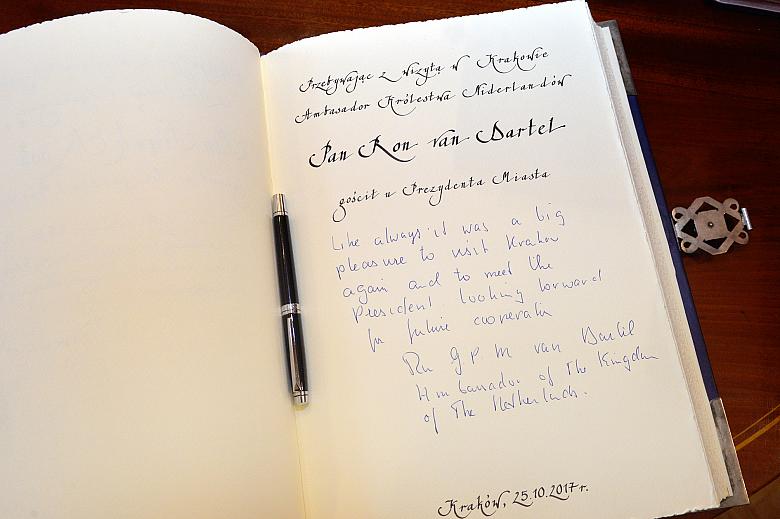 Przebywając z wizytą w Krakowie
Ambasador Królestwa Niderlandów
Pan Ron van Dartel
gościł u Prezydenta Miasta
Like always it was a big
pleasure to visit Krakow
again and to meet the
President. Looking forward
for future cooperation
Ron G P M van Dartel
Ambassador of The Kingdom
of The Netherlands.
Kraków, 25.10.2017 r.